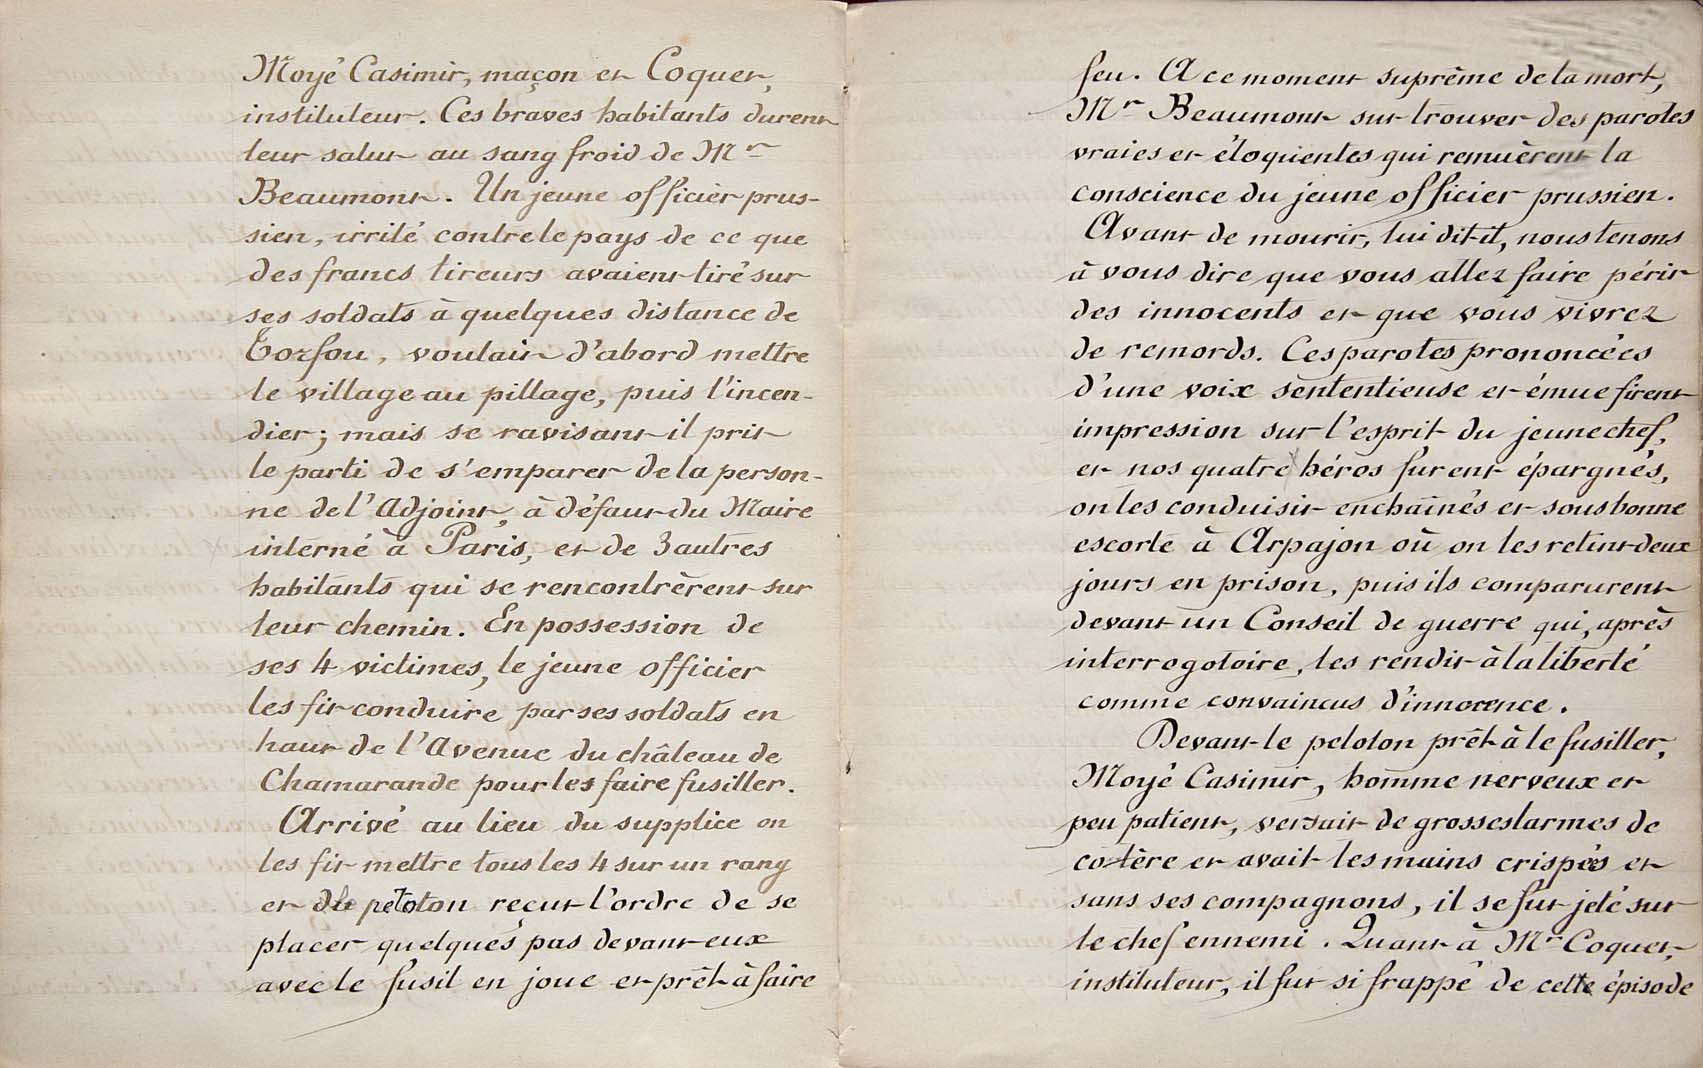 Moyé Casimir, maçon et Coquet,
instituteur. Ces braves habitants durent
leur salut au sang froid de Mr
Beaumont. Un jeune officier prus-
sien, irrité contre le pays de ce que
des francs tireurs avaient tiré sur
ses soldats à quelques distance de
Torfou, voulait d'abord mettre
le village au pillage, puis l'incen-
dier; mais se ravisant il prit
le parti de s'emparer de la person-
ne de l'Adjoint, à défaut du Maire
interné à Paris, et de 3 autres
habitants qui se rencontrèrent sur
leur chemin. En possession de
ses 4 victimes, le jeune officier
les fit conduire par ses soldats en
haut de l'Avenue du château de
Chamarande pour les faire fusiller.
Arrivé au lieu du supplice on
les fit mettre tous les 4 sur un rang
et le peloton reçut l'ordre de se
placer quelques pas devant eux
avec le fusil en joue et prêt à faire
feu. A ce moment suprême de la mort,
Mr Beaumont sut trouver des paroles
vraies et éloquentes qui remuèrent la
conscience du jeune officier prussien.
Avant de mourir, lui dit-il, nous tenons
à vous dire que vous allez faire périr
des innocents et que vous vivrez
de remords. Ces paroles prononcées
d'une voix sententieuse et émue firent
impression sur l'esprit du jeune chef,
et nos quatre héros furent épargnés,
on les conduisit enchaînés et sous bonne
escorte à Arpajon où on les retint deux
jours en prison, puis ils comparurent
devant un Conseil de guerre qui, après
interrogotoire, les rendit à la liberté
comme convaincus d'innocence.
Devant le peloton prêt à le fusiller,
Moyé Casimir, homme nerveux et
peu patient, versait de grosses larmes de
colère et avait les mains crispés et
sans ses compagnons, il se fut jeté sur
le chef ennemi. Quant à Mr Coquet,
instituteur, il fut si frappé de cette épisode